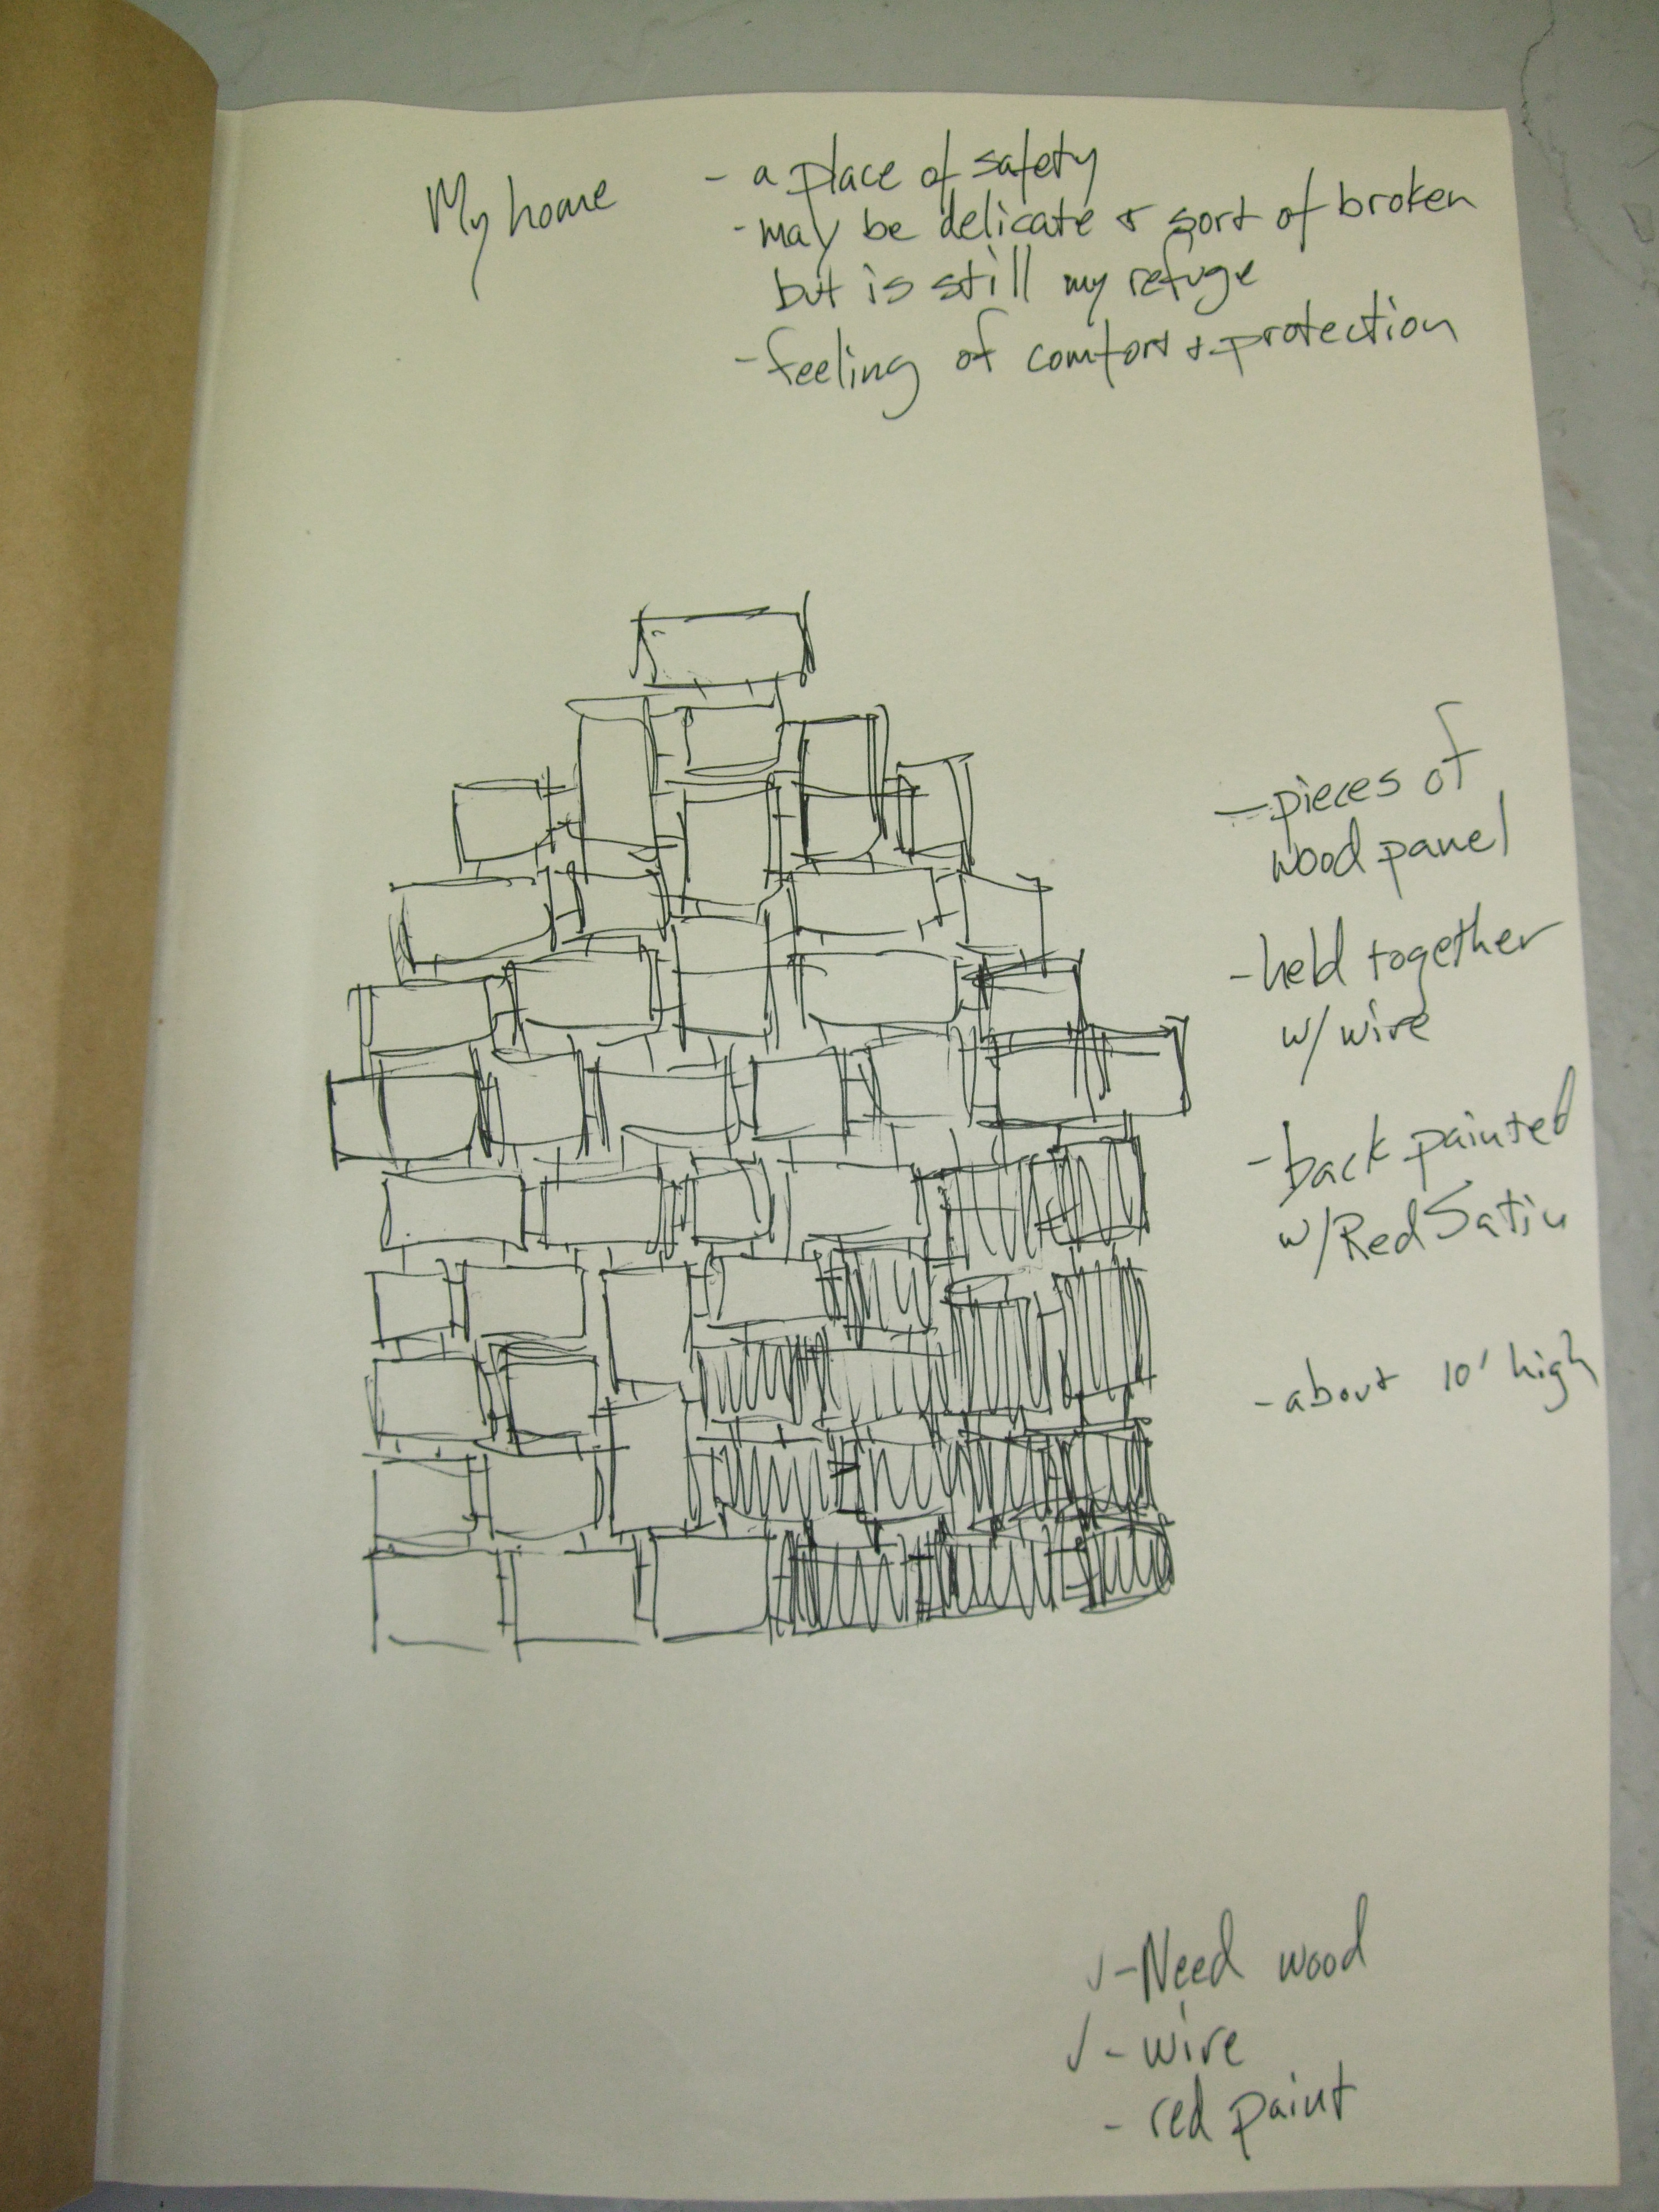 My home
- a place of safety
- may be delicate & sort of broken
but is still my refuge
- feeling of comfort & protection
- pieces of
wood panel
- held together
w/ wire
- back painted
w/ Red Satin
- about 10' high
✓ - Need wood
✓ - wire
- red paint